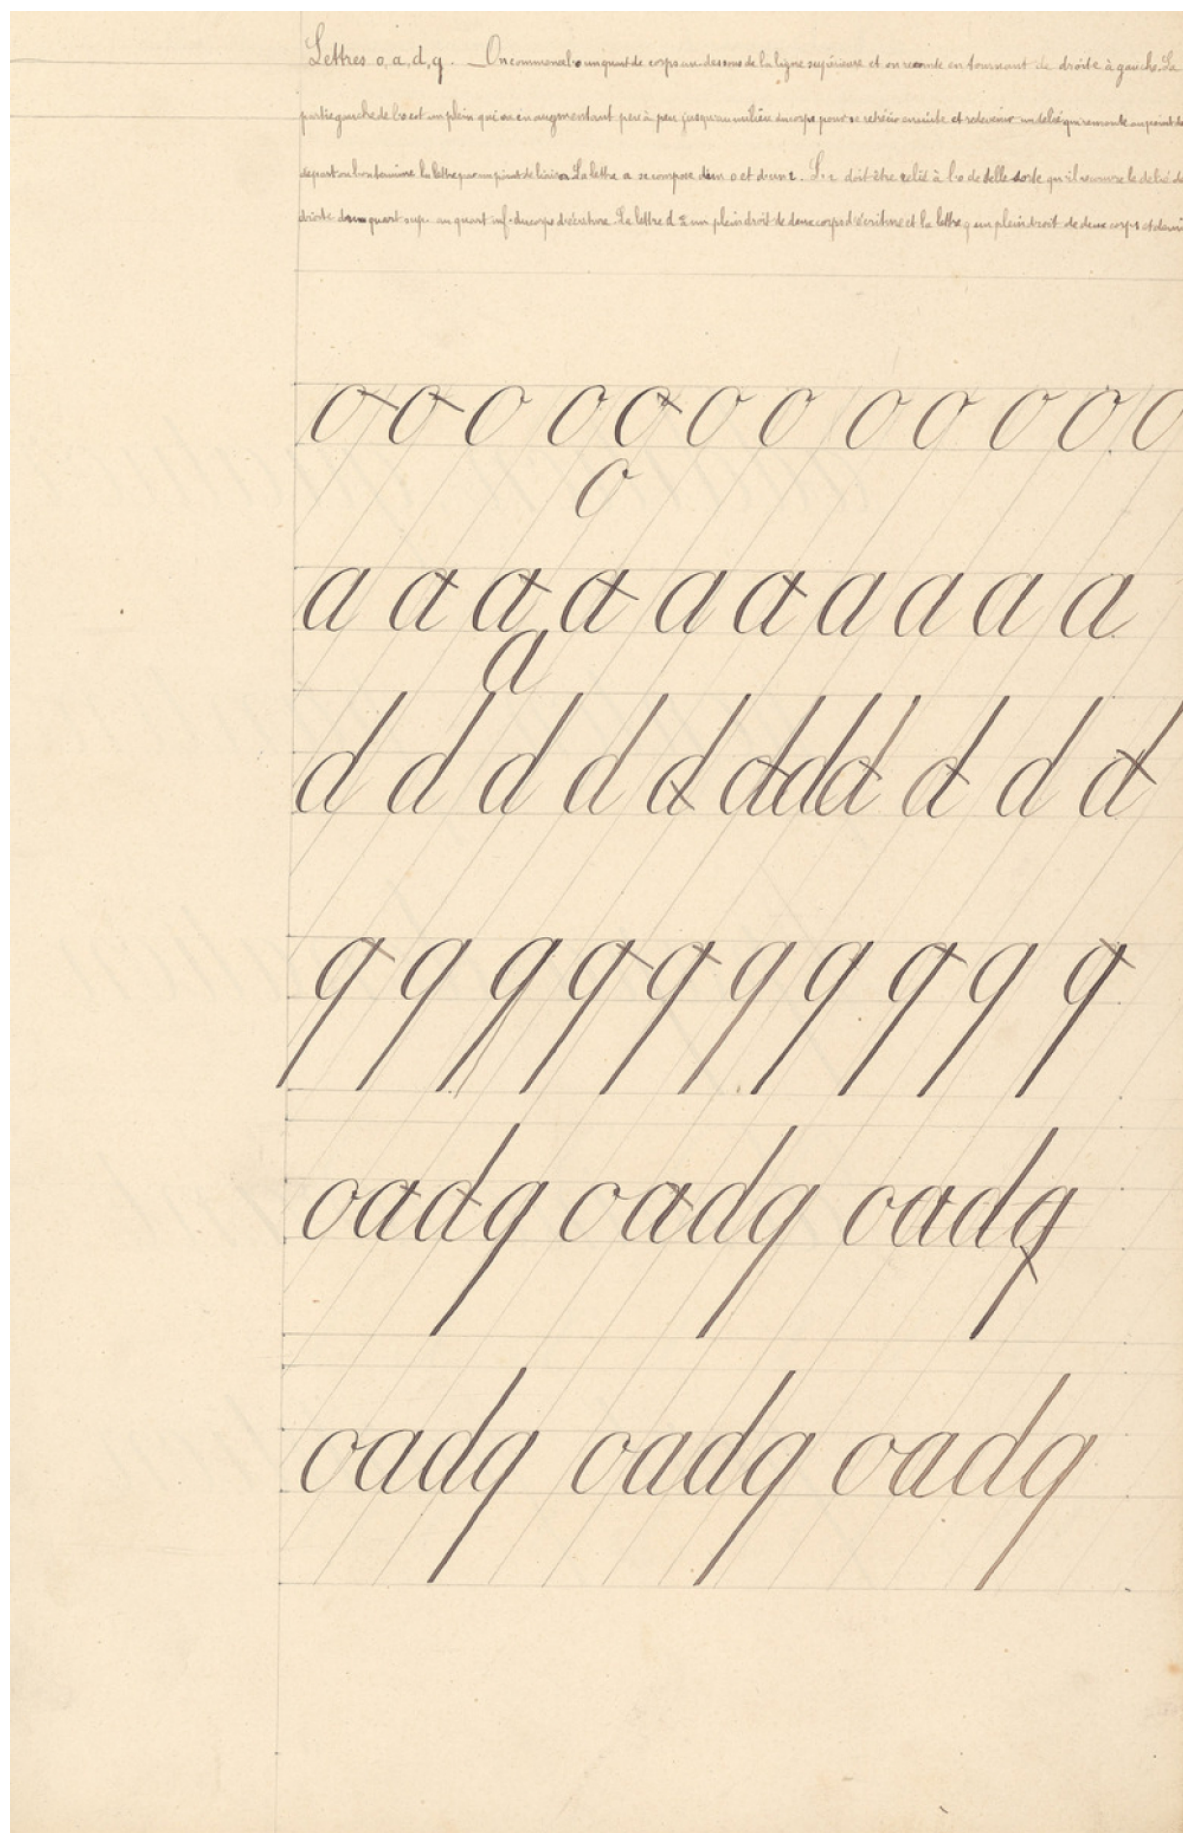 Lettres o, a, d, q. _ On commence l'o un quart de corps au dessous de la ligne supérieure et on remonte en tournant de droite à gauche. La
partie gauche de l'o est un plein qui va en augmentant peu à peu jusqu'au milieu du corps pour se rétrécir ensuite et redevenir un délié qui remonte au point de
départ on termine la lettre par un point de liaison La lettre a se compose d'un o et d'un i. L'i doit être relié à l'o de telle sorte qu'il recouvre le délié de
droite du quart sup. au quart inf. du corps d'écriture. La lettre d a un plein droit de deux corps d'écriture et la lettre q un plein droit de deux corps et demi
o o o o o o o o o o o o
o
a a a a a a a a a a
a
d d d d d d d d d d d
q q q q q q q q q q
oadq oadq oadq
oadq oadq oadq